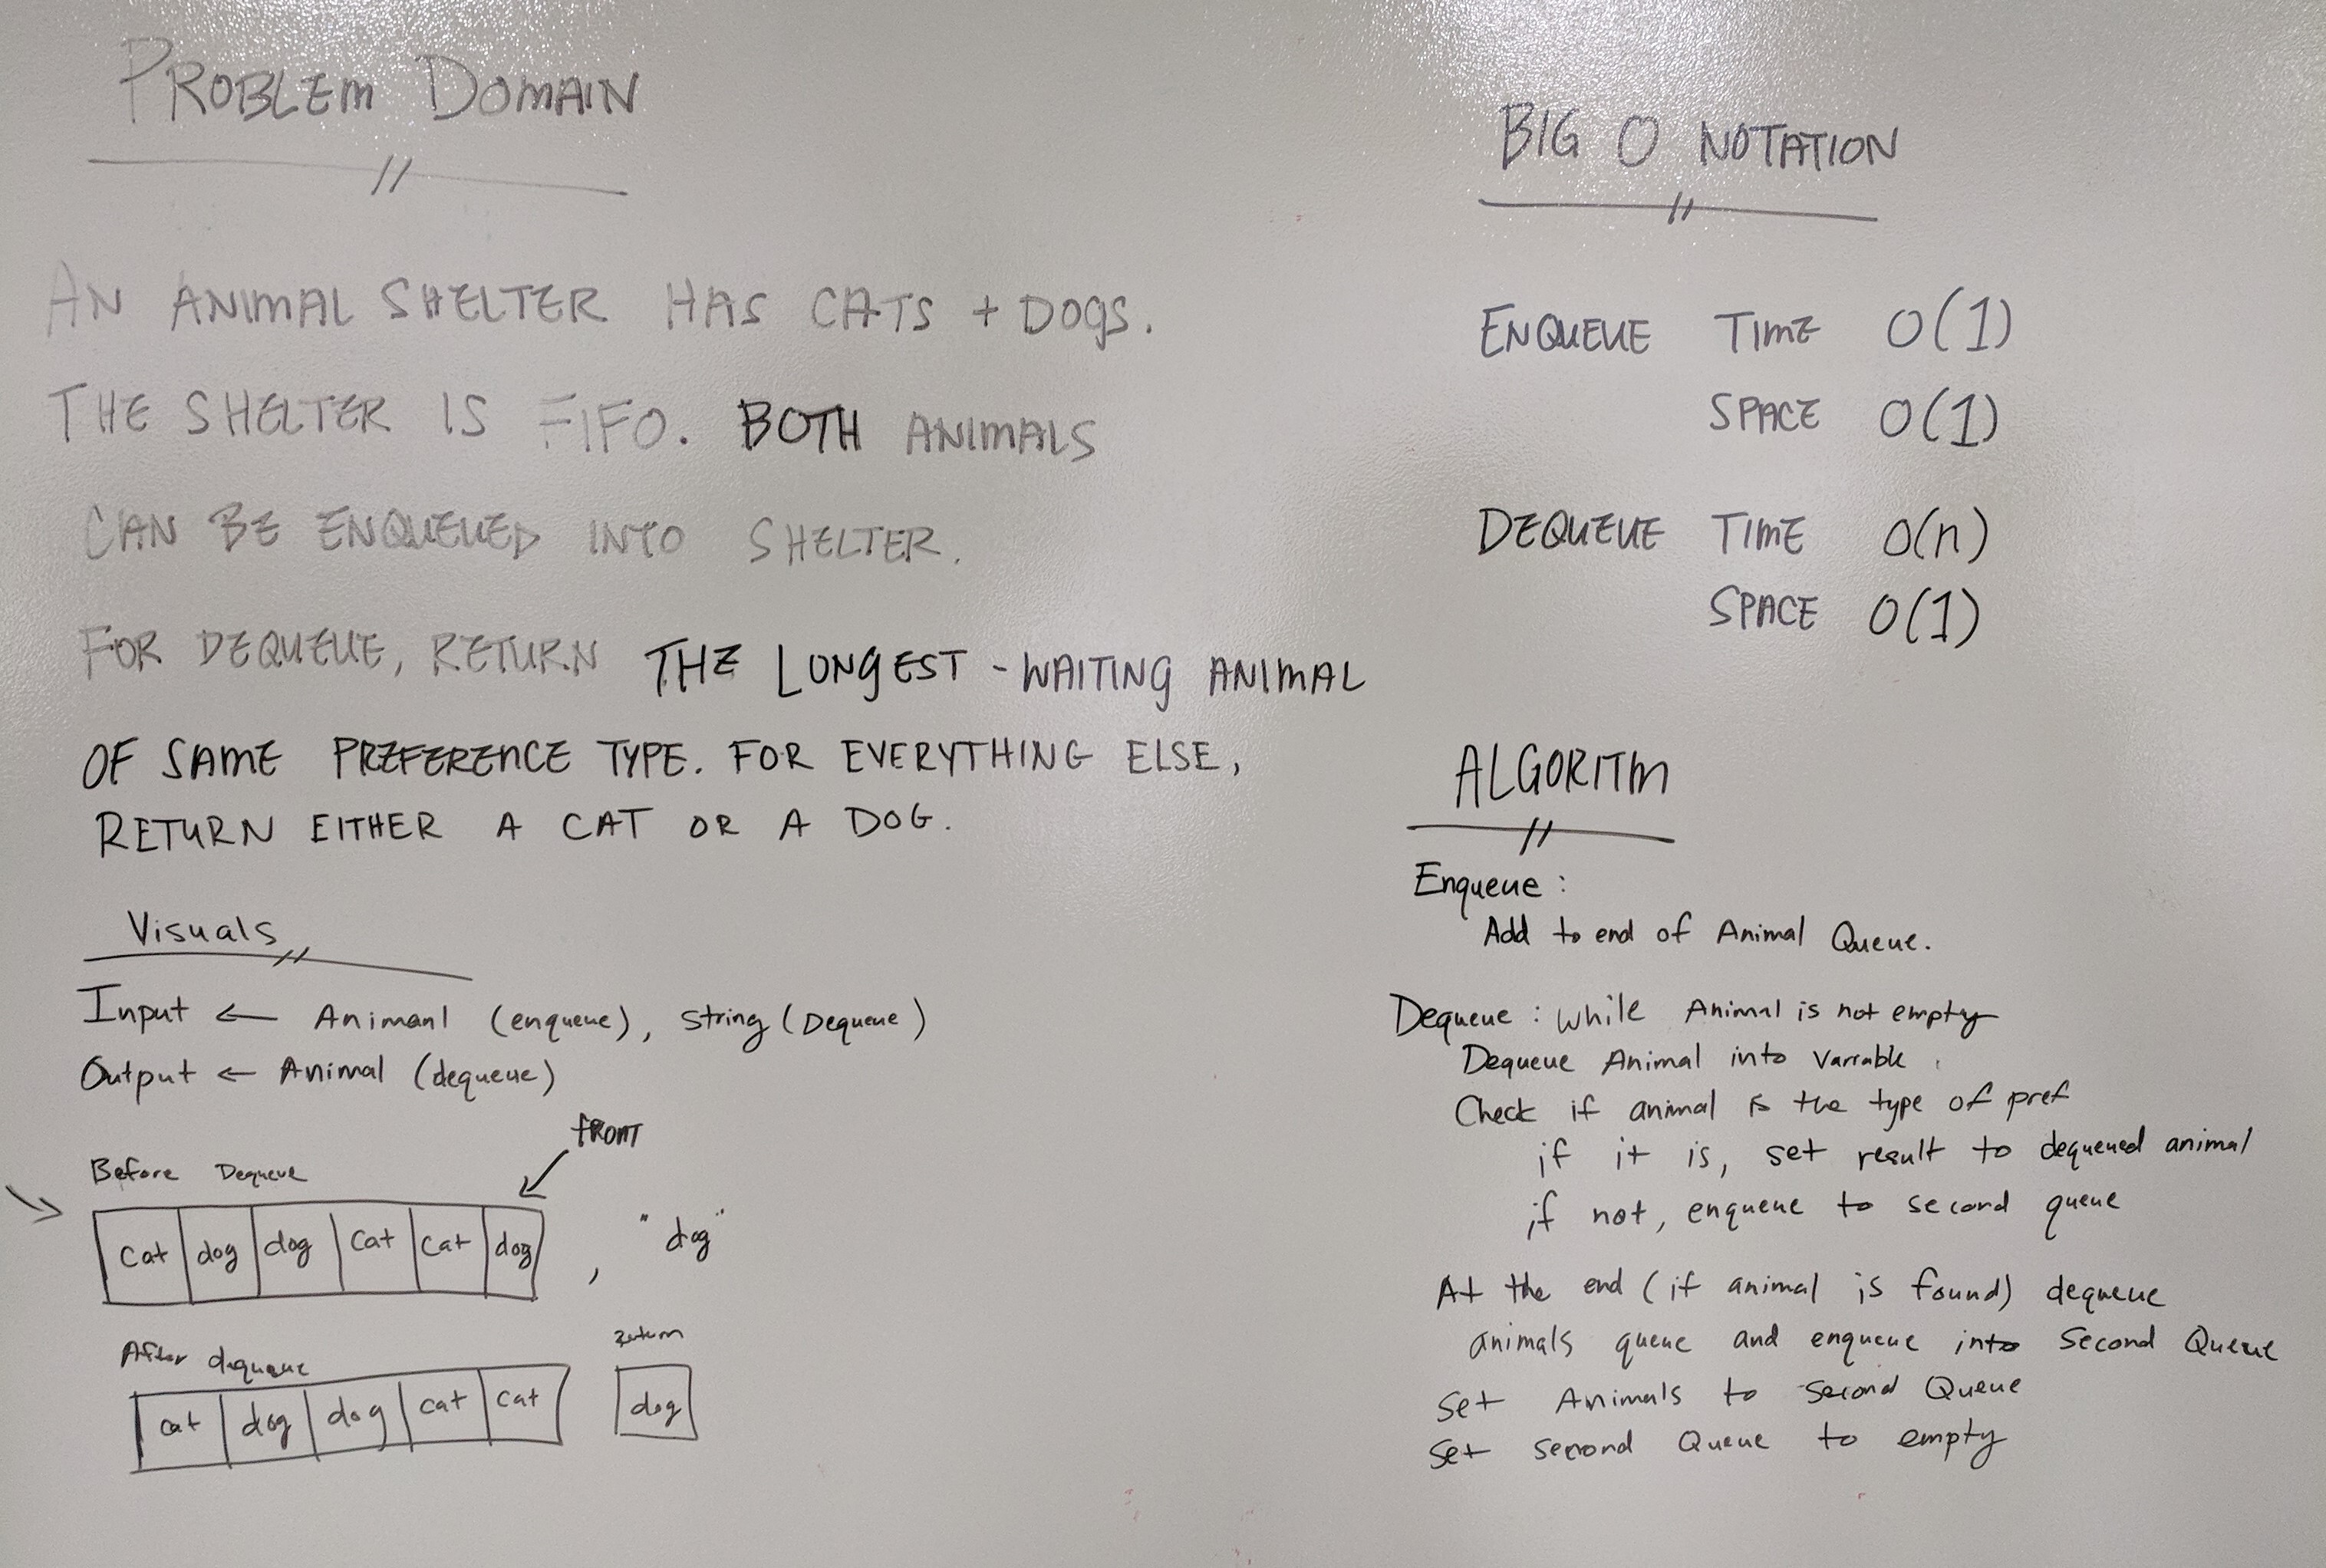 PROBLEM DOMAIN
AN ANIMAL SHELTER HAS CATS + DOGS.
THE SHELTER IS FIFO. BOTH ANIMALS
CAN BE ENQUEUED INTO SHELTER.
FOR DEQUEUE, RETURN THE LONGEST - WAITING ANIMAL
OF SAME PREFERENCE TYPE. FOR EVERYTHING ELSE,
RETURN EITHER A CAT OR A DOG.
Visuals
Input ← Animanl (enqueue), string (Dequeue)
Output ← Animal (dequeue)
FRONT
Before Dequeue
Cat dog dog Cat Cat dog , "dog"
After dequeue
return
cat dog dog cat cat dog
BIG O NOTATION
ENQUEUE TIME O(1)
SPACE O(1)
DEQUEUE TIME O(n)
SPACE O(1)
ALGORITM
Enqueue :
Add to end of Animal Queue.
Dequeue : while Animal is not empty
Dequeue Animal into variable
Check if animal is the type of pref
if it is, set result to dequeued animal
if not, enqueue to second queue
At the end (if animal is found) dequeue
animals queue and enqueue into Second Queue
Set Animals to Second Queue
Set second Queue to empty